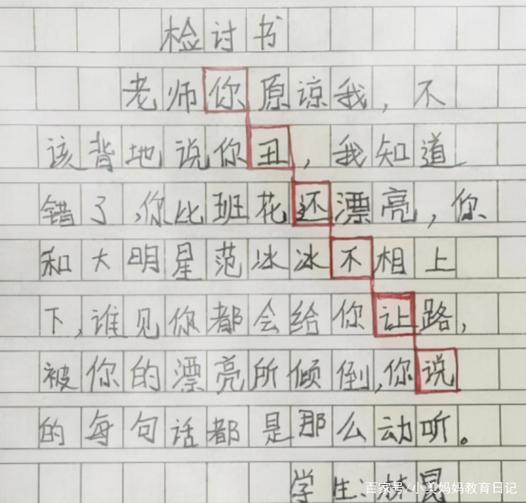 检讨书
老师你原谅我，不
该背地说你丑，我知道
错了，你比班花还漂亮，你
和大明星范冰冰不相上
下，谁见你都会给你让路，
被你的漂亮所倾倒，你说
的每句话都是那么动听。
学生：
百家号/小美妈妈教育日记